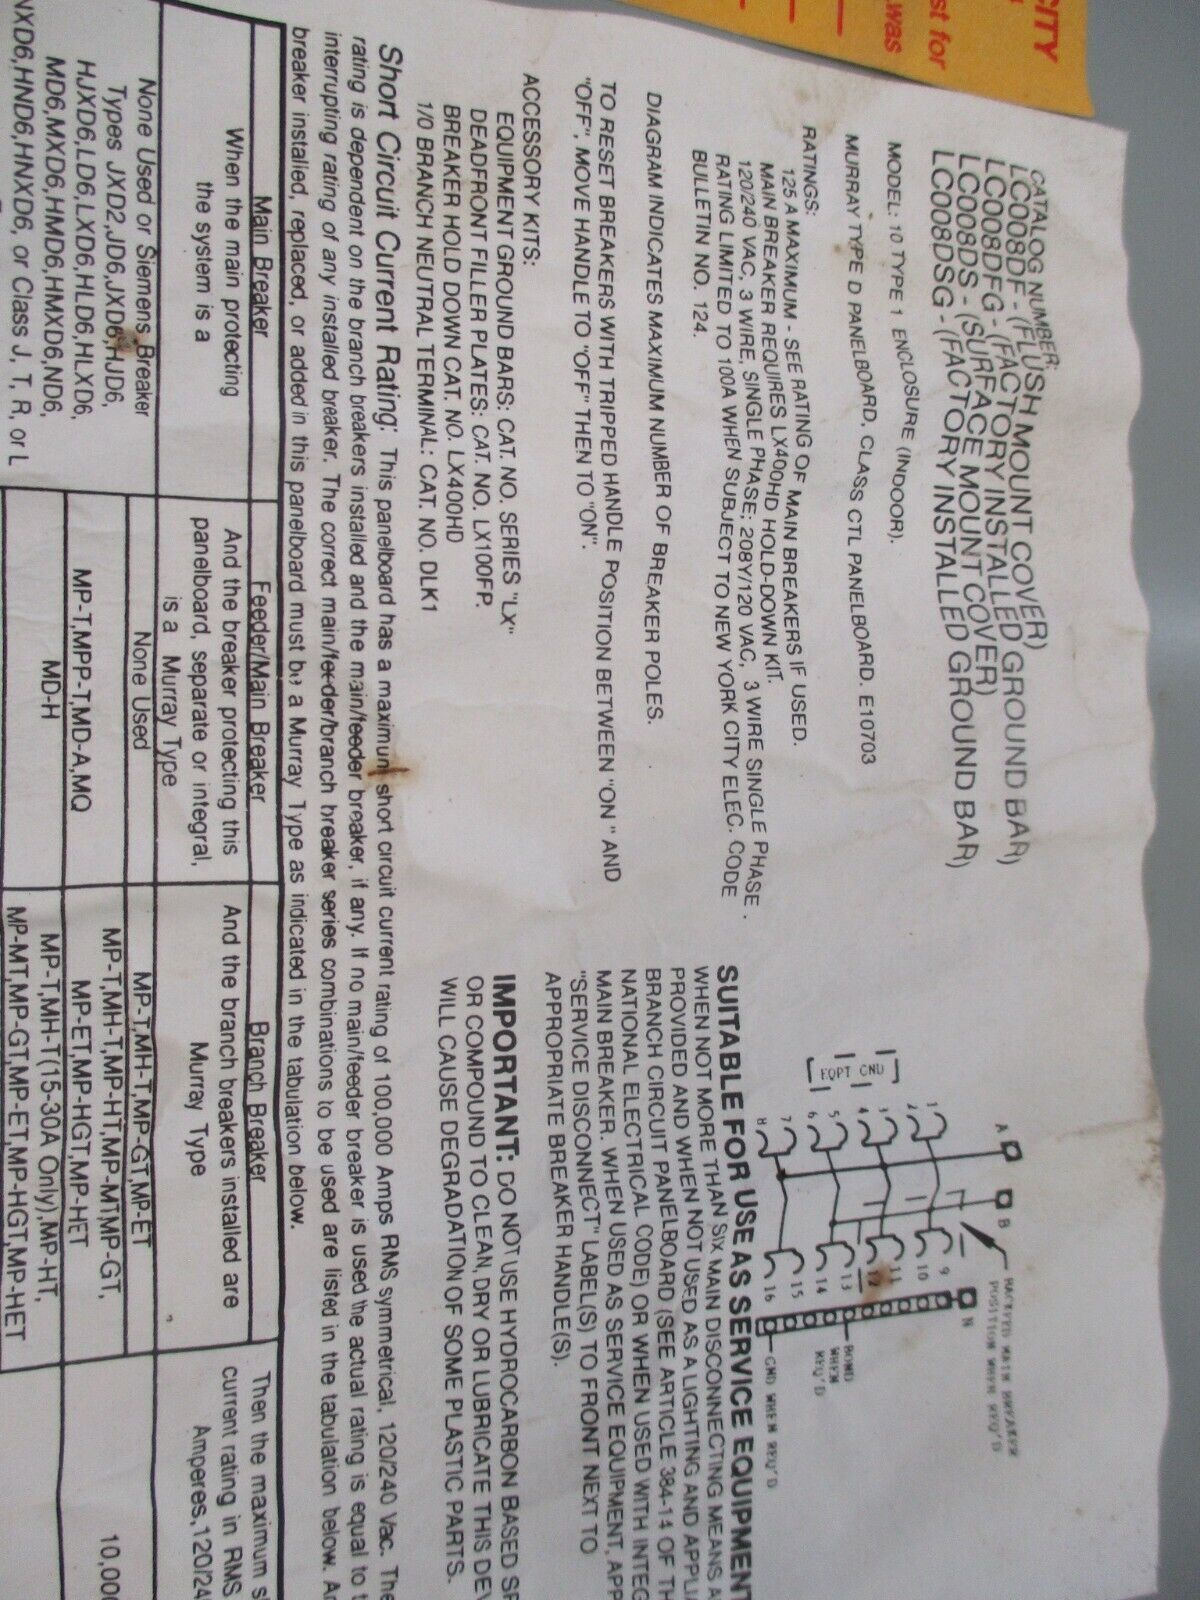 CITY
st for
was
CATALOG NUMBER:
LC008DF - (FLUSH MOUNT COVER)
LC008DFG - (FACTORY INSTALLED GROUND BAR)
LC008DS - (SURFACE MOUNT COVER)
LC008DSG - (FACTORY INSTALLED GROUND BAR)
MODEL: 10 TYPE 1 ENCLOSURE (INDOOR).
MURRAY TYPE D PANELBOARD, CLASS CTL PANELBOARD. E10703
RATINGS:
125 A MAXIMUM - SEE RATING OF MAIN BREAKERS IF USED.
MAIN BREAKER REQUIRES LX400HD HOLD-DOWN KIT.
120/240 VAC, 3 WIRE, SINGLE PHASE; 208Y/120 VAC, 3 WIRE SINGLE PHASE.
RATING LIMITED TO 100A WHEN SUBJECT TO NEW YORK CITY ELEC. CODE
BULLETIN NO. 124.
DIAGRAM INDICATES MAXIMUM NUMBER OF BREAKER POLES.
TO RESET BREAKERS WITH TRIPPED HANDLE POSITION BETWEEN "ON" AND
"OFF", MOVE HANDLE TO "OFF" THEN TO "ON".
ACCESSORY KITS:
EQUIPMENT GROUND BARS: CAT. NO. SERIES "LX"
DEADFRONT FILLER PLATES: CAT. NO. LX100FP.
BREAKER HOLD DOWN CAT. NO. LX400HD
1/0 BRANCH NEUTRAL TERMINAL: CAT. NO. DLK1
A B N
BACKFED MAIN BREAKER
POSITION WHEN REQ'D
1 9
2 10
3 11
4 12
5 13
6 14
7 15
8 16
EQPT GND
BOND
WHEN
REQ'D
GND WHEN REQ'D
SUITABLE FOR USE AS SERVICE EQUIPMENT
WHEN NOT MORE THAN SIX MAIN DISCONNECTING MEANS A
PROVIDED AND WHEN NOT USED AS A LIGHTING AND APPLI
BRANCH CIRCUIT PANELBOARD (SEE ARTICLE 384-14 OF TH
NATIONAL ELECTRICAL CODE) OR WHEN USED WITH INTEG
MAIN BREAKER. WHEN USED AS SERVICE EQUIPMENT, APP
"SERVICE DISCONNECT" LABEL(S) TO FRONT NEXT TO
APPROPRIATE BREAKER HANDLE(S).
IMPORTANT: DO NOT USE HYDROCARBON BASED SP
OR COMPOUND TO CLEAN, DRY OR LUBRICATE THIS DEV
WILL CAUSE DEGRADATION OF SOME PLASTIC PARTS.
Short Circuit Current Rating: This panelboard has a maximum short circuit current rating of 100,000 Amps RMS symmetrical, 120/240 Vac. The
rating is dependent on the branch breakers installed and the main/feeder breaker, if any. If no main/feeder breaker is used the actual rating is equal to t
interrupting rating of any installed breaker. The correct main/feeder/branch breaker series combinations to be used are listed in the tabulation below. An
breaker installed, replaced, or added in this panelboard must be a Murray Type as indicated in the tabulation below.
Main Breaker
Feeder/Main Breaker
Branch Breaker
When the main protecting
the system is a
And the breaker protecting this
panelboard, separate or integral,
is a Murray Type
And the branch breakers installed are
Murray Type
Then the maximum s
current rating in RMS
Amperes, 120/24
None Used or Siemens Breaker
Types JXD2,JD6,JXD6,HJD6,
HJXD6,LD6,LXD6,HLD6,HLXD6,
MD6,MXD6,HMD6,HMXD6,ND6,
NXD6,HND6,HNXD6, or Class J, T, R, or L
None Used
MP-T,MH-T,MP-GT,MP-ET
MP-T,MPP-T,MD-A,MQ
MP-T,MH-T,MP-HT,MP-MT,MP-GT,
MP-ET,MP-HGT,MP-HET
10,000
MD-H
MP-T,MH-T(15-30A Only),MP-HT,
MP-MT,MP-GT,MP-ET,MP-HGT,MP-HET